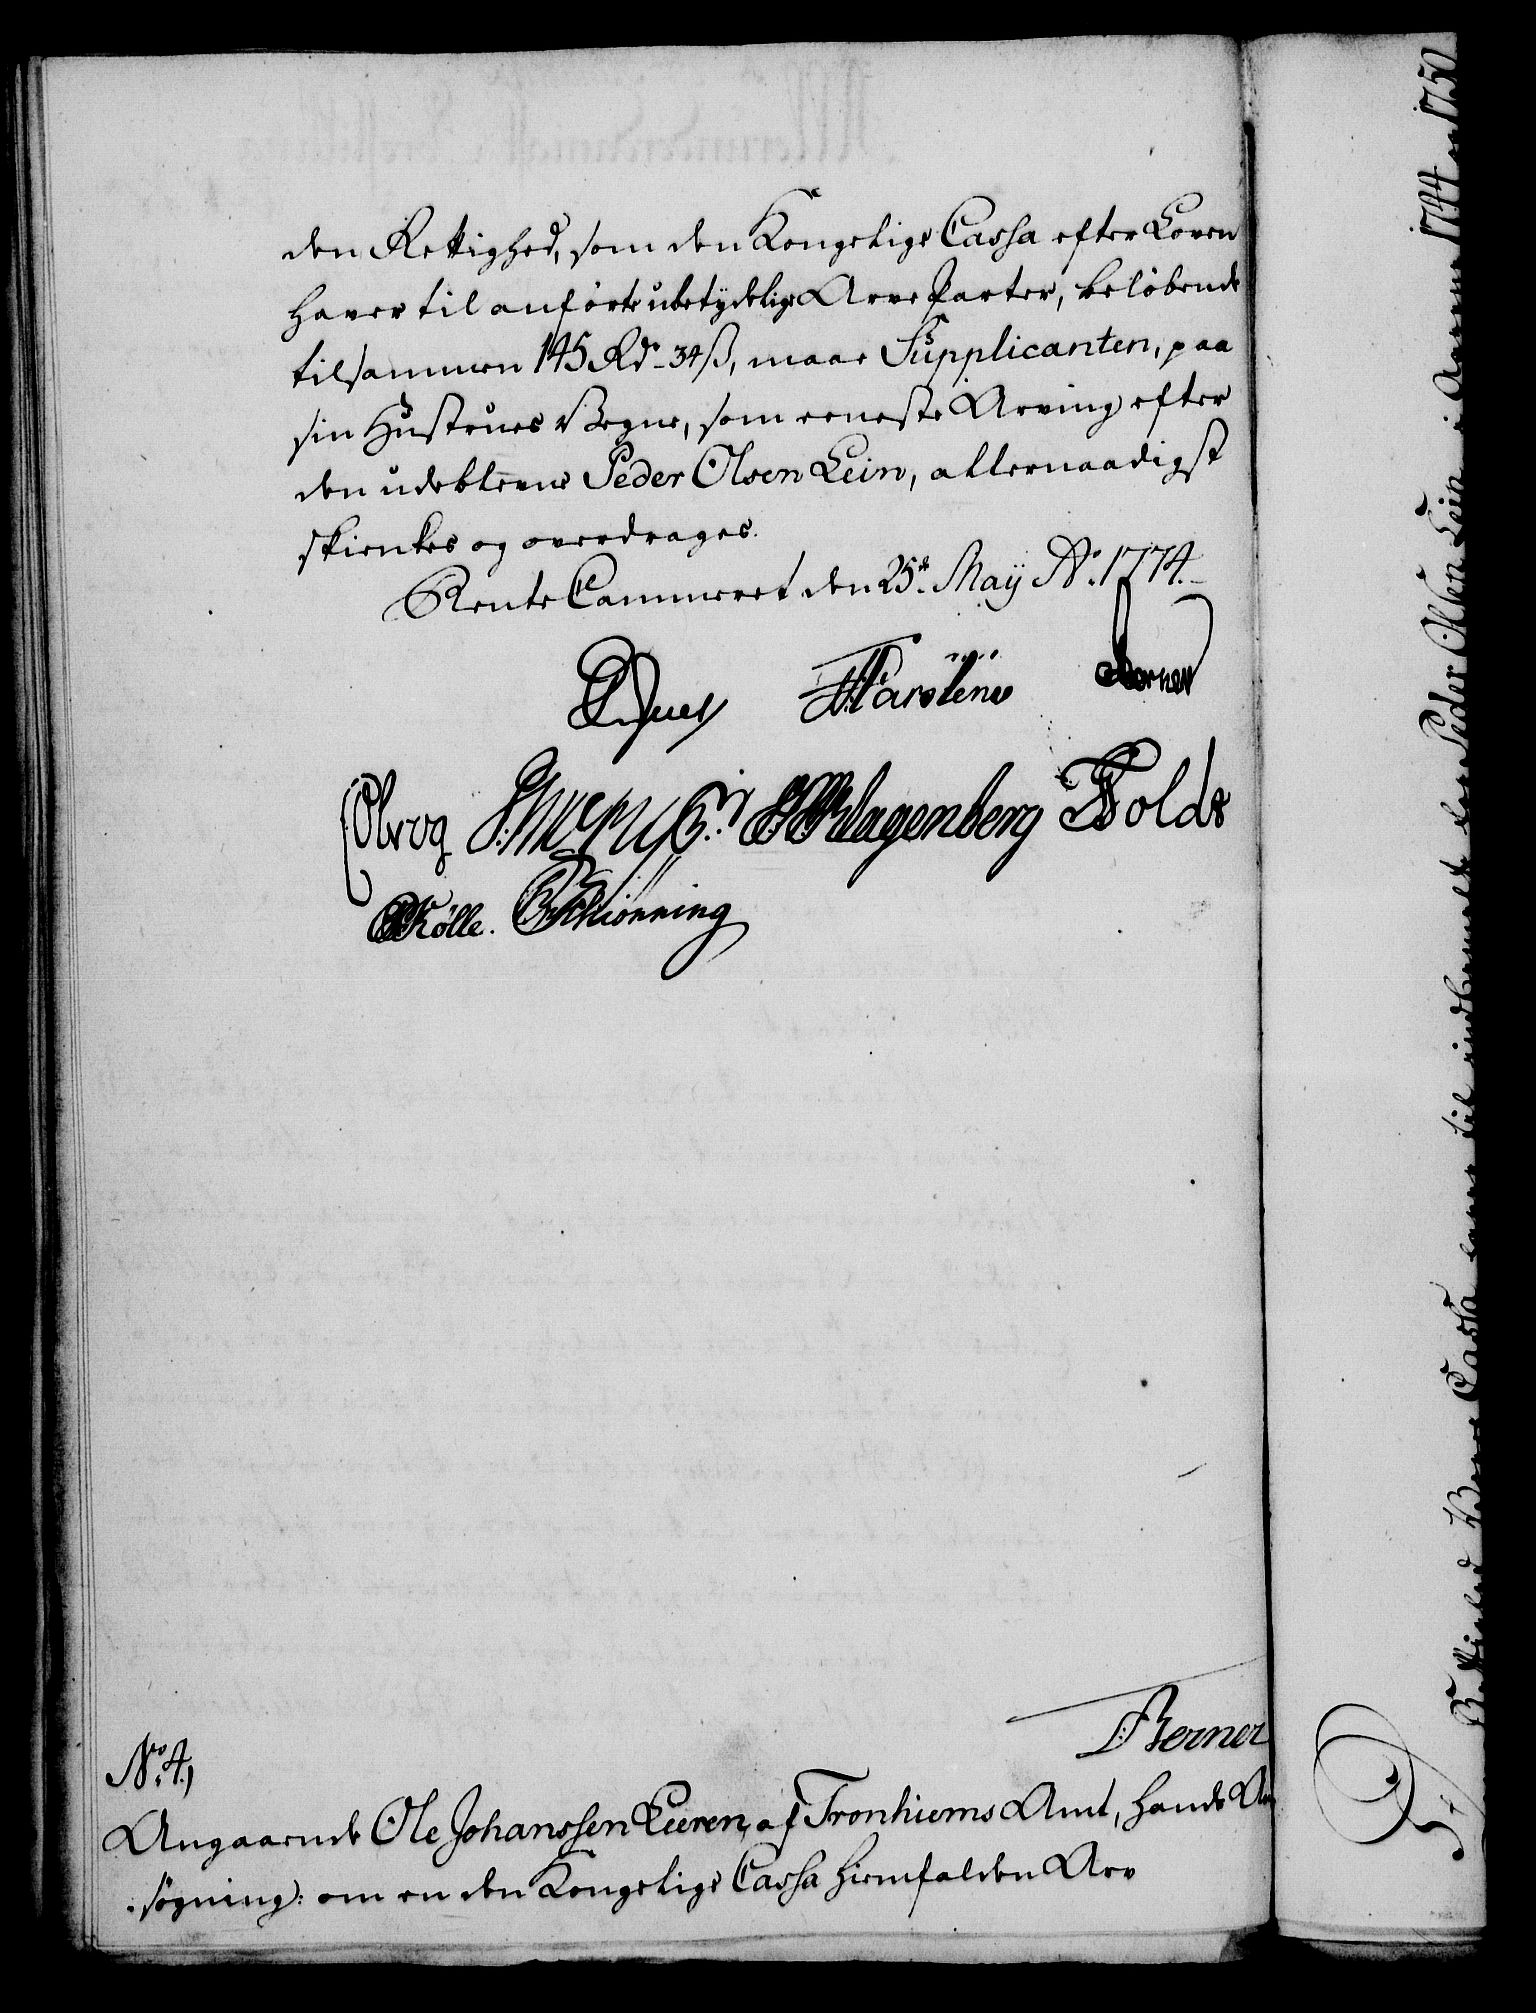 den Rettighed, som den Kongelige Cassa efter Loven
haver til anførte ubetydelige Arve Parter, beløbende
tilsammen 145 Rdr 34 ß, maae Supplicanten, paa
sin Hustrues Vegne, som eeneste Arving efter
den udeblevne Peder Olsen Lein, allernaadigst
skienkes og overdrages.
Rente Cammeret den 25de Maÿ Ao. 1774.
Juel Carstens Berner
Olrog Klagenberg Tolde
Rølle. Schiønning
: Berner
No. 4,
Angaaende Ole Johanssen Leeren, af Tronhiems Amt, hands An
søgning: om en den Kongelige Cassa hiemfalden Arv
Rettighed Cassa til indbemelte Peder Olsen Lein i Aarene 1744 og 1750